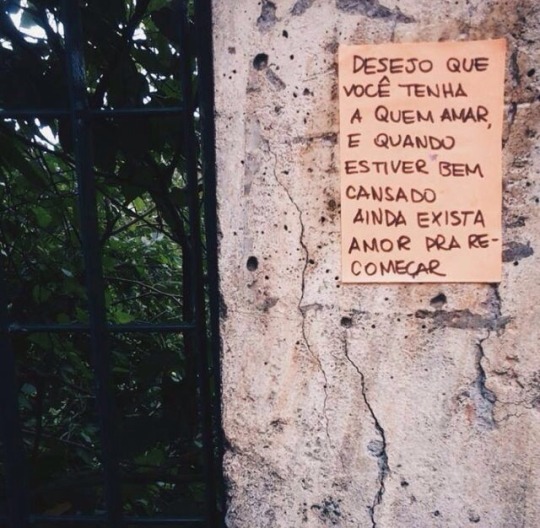 DESEJO QUE
VOCÊ TENHA
A QUEM AMAR,
E QUANDO
ESTIVER BEM
CANSADO
AINDA EXISTA
AMOR PRA RE-
COMEÇAR